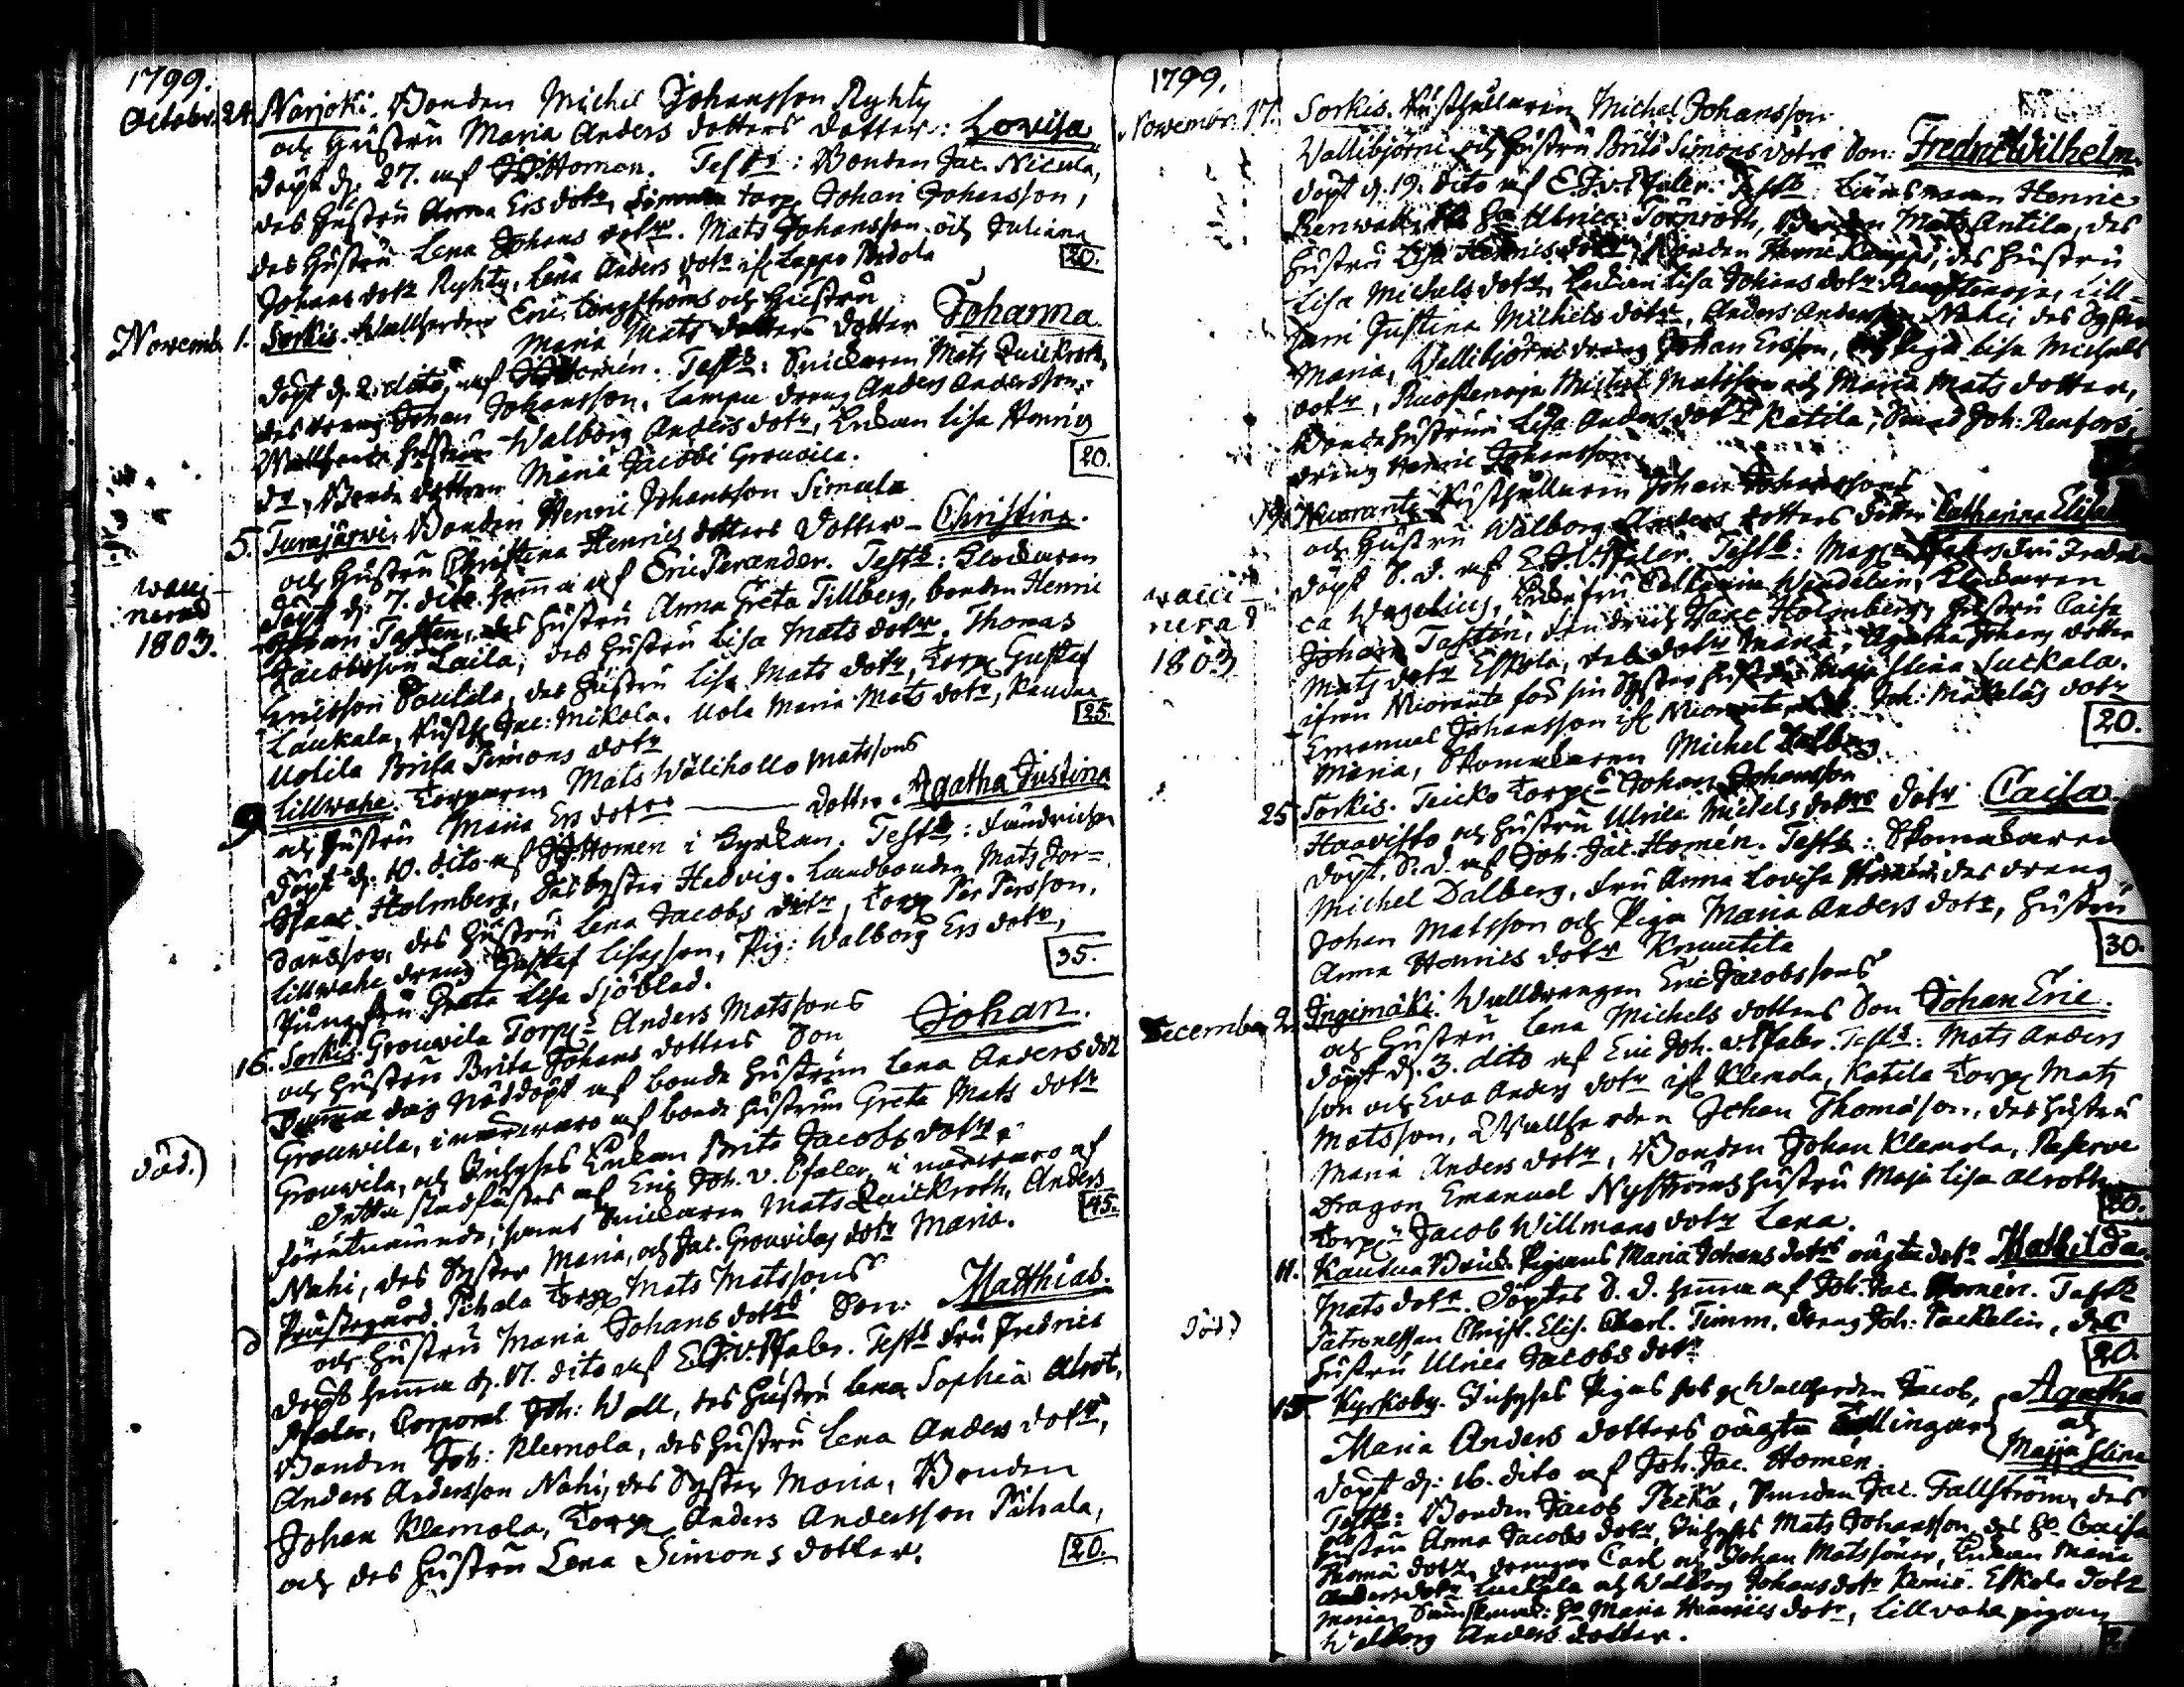 1799.
Octobr. 24. Narjoki. Bonden Michel Johansson Ryhty
och Hustru Maria Anders dotters dotter: Lovisa
döpt d. 27. af JJ Homén. Test.: Bonden Jac. Nicula,
des Hustru Anna Ers dotr, torp. Johan Johansson,
des Hustru Lena Johans dotr. Mats Johansson och Juliana
Johans dotr Ryhty, Lena Anders dotr ifr. Lappo
20.
Novemb. 1. Sorkis. Wallherden Eric Longströms och Hustru
Maria Mats dotters dotter Johanna
döpt d. 2. dito af JJ Homén. Test.: Snickaren Mats Quickroth,
des dräng Johan Johansson, Lampu dräng Anders Andersson,
Wallherde hustrun Walborg Anders dotr, Enkan Lisa Henrics
dr, Bonde dottren Maria Jacobi Grouvila.
20.
5. Turajärvi. Bonden Henric Johansson Simula
och Hustru Christina Henrics dotters dotter - Christina.
döpt d. 7. dito hemma af Eric Perander. Test.: Klockaren
Johan Tasten, des Hustru Anna Greta Tillberg, bonden Henric
Jacobsson Laila, des Hustru Lisa Mats dotr. Thomas
Ericsson Pouttula, des Hustru Lisa Mats dotr, torp. Gustaf
Laukala, Rusth. Jac: Mikola. Uola Maria Mats dotr,
Uotila Brita Simons dotr
25.
wacci-
nerad
1803.
9 Lillwahe. Torparen Mats Wälihollo Matssons
och Hustru Maria Ers dotrs — dotter. Agatha Justina
döpt d. 10. dito af JJ Homén i Kyrkan. Test.: Fändriken
Isaac Holmberg, Des Syster Hedvig. Landbonden Mats Jor-
dansson, des Hustru Lena Jacobs dotr, torp. Per Persson,
Lillwahe dräng Gustaf Lisasson, Pig: Walborg Ers dotr,
Jungfru Greta Lisa Sjöblad.
35.
16. Sorkis. Grouvila Torp. Anders Matssons
och Hustru Brita Johans dotters Son Johan.
Samma dag nöddöpt af bonde hustrun Lena Anders dotr
Grouvila, i närwaro af bonde hustrun Greta Mats dotr
Grouvila, och Inhyses Enkan Brita Jacobs dotr.
Detta stadfästes af Eric Joh. v. Pfaler, i närwaro af
förutnämnde, samt Snickaren Mats Quickroth, Anders
Nahi, des Syster Maria, och Jac. Grouvilas dotr Maria.
45.
död.)
d Prästegård. Pihala torp. Mats Matssons
och Hustru Maria Johans dotrs Son: Matthias.
döpt hemma d. 17. dito af E.J.v. Pfaler. Test. Fru Fredrica
Pfaler, Corporal Joh: Wall, des Hustru Lena Sophia Alrot,
Bonden Joh: Klemola, des Hustru Lena Anders dotr,
Anders Andersson Nahi, des Syster Maria, Bonden
Johan Klemola, Torp. Anders Andersson Pihala,
och des Hustru Lena Simons dotter.
20.
1799.
Novembr. 17. Sorkis. Rusthållaren Michel Johansson
Vällibjörni och Hustru Brita Simons dotrs Son: Fredric Wilhelm.
döpt d. 19. dito af E.J.v. Pfaler. Test. Länsman Henric
Renwall, Ulrica Törnroth, Bonden Mats Antila, des
Hustru Lisa Henrics dotr, Bonden Henric Kauppi, des Hustru
Lisa Michels dotr, Enkan Lisa Johans dotr Lill-
Jani Justina Michels dotr, Anders Andersson Nahi, des Syster
Maria, Vällibjörni dräng Johan Ersson, Piga Lisa Michels
dotr, Michel Matsson och Maria Mats dotter,
Bonde hustrun Lisa Anders dotr Katila, Smed Joh: Renfors,
dräng Henric Johansson.
19. Niuranta. Rusthållaren Johan Johanssons
och Hustru Walborg Anders dotters dotter Catharina Elisab
döpt S. D. af E.J.v. Pfaler. Test.: Fru Fredri-
ca Wegelius, Enkefru Catharina Windelin, Klockaren
Johan Tasten, Fändrich Isaac Holmberg, Hustru Caisa
Mats dotr Eskola, dotr Maria, Agatha Johans dotter
ifrån Niuranta Maja Stina Luckala.
Emanuel Johansson ifr. Niuranta, Joh: Mäkeläs dotr
Maria, Skomakaren Michel Dalberg.
20.
wacci-
nerad
1803
25 Sorkis. Teicko torp. Johan Johansson
Haavisto och Hustru Ulrica Michels dotrs dotr Caisa.
döpt. S. D. af Joh. Jac. Homén. Test.: Skomakaren
Michel Dalberg, Fru Anna Lovisa Homén, des dräng
Johan Matsson och Piga Maria Anders dotr, Hustru
Anna Henrics dotr Knuutila
30.
December 2. Ingimäki. Walldrengen Eric Jacobssons
och Hustru Lena Michels dotters Son Johan Eric.
döpt d. 3. dito af Eric Joh. v. Pfaler. Test.: Mats Anders
son och Eva Anders dotr ifr. Klemola, Katila torp. Mats
Matsson, Wallherden Johan Thomasson, des Hustru
Maria Anders dotr, Bonden Johan Klemola, Reserve
Dragon Emanuel Nyströms Hustru Maja Lisa Alroth,
Torp. Jacob Willmans dotr Lena.
20.
11. Kauttua Bruk. Pigans Maria Johans dotrs oägta dotr Mathilda.
Mats dotr. Döptes S. D. hemma af Joh. Jac. Homén. Test.
Patronessan Christ. Elis. Charl. Timm, dräng Joh: Packelin, des
Hustru Ulrica Jacobs dotr
20.
död)
15 Kyrkoby. Inhyses Pigans hos Wallherden Jacob, Agatha
Maria Anders dotters oägta Tvillingar och
döpt d: 16. dito af Joh. Jac. Homén. Majja Stina
Test.: Bonden Jacob Pecka, Smeden Jac. Fallström, des
Hustru Anna Jacobs dotr, Inhyses Mats Johansson, des Ho Caisa
Thomæ dotr, drengar Carl och Johan Matssöner, Enkan Maria
Anders dotr Luckala och Walborg Johans dotr Kemis. Eskola dotr
Maria, Ho Maria Henrics dotr, Lillvahe pigan
Walborg Anders dotter.